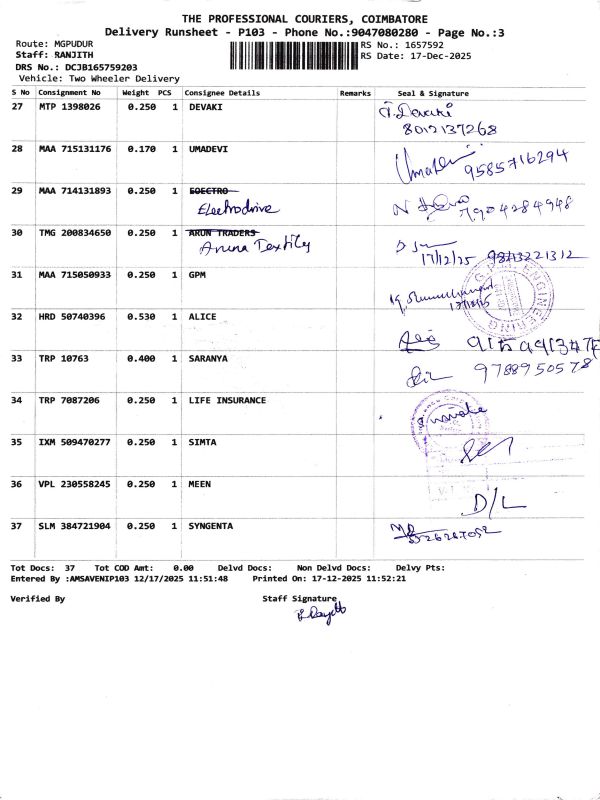 THE PROFESSIONAL COURIERS, COIMBATORE
Delivery Runsheet - P103 - Phone No.:9047080280 - Page No.:3
Route: MGPUDUR
Staff: RANJITH
DRS No.: DCJB165759203
Vehicle: Two Wheeler Delivery
RS No.: 1657592
RS Date: 17-Dec-2025
S No Consignment No Weight PCS Consignee Details Remarks Seal & Signature
27 MTP 1398026 0.250 1 DEVAKI Devaki
8012137268
28 MAA 715131176 0.170 1 UMADEVI 9585716294
29 MAA 714131893 0.250 1 EOECTRO
Electrodrive 7904284948
30 TMG 200834650 0.250 1 ARUN TRADERS
Aruna Textiles 17/12/25 9843221312
31 MAA 715050933 0.250 1 GPM
32 HRD 50740396 0.530 1 ALICE
33 TRP 10763 0.400 1 SARANYA 9788950578
34 TRP 7087206 0.250 1 LIFE INSURANCE
35 IXM 509470277 0.250 1 SIMTA
36 VPL 230558245 0.250 1 MEEN D/L
37 SLM 384721904 0.250 1 SYNGENTA
Tot Docs: 37 Tot COD Amt: 0.00 Delvd Docs: Non Delvd Docs: Delvy Pts:
Entered By :AMSAVENIP103 12/17/2025 11:51:48 Printed On: 17-12-2025 11:52:21
Verified By Staff Signature